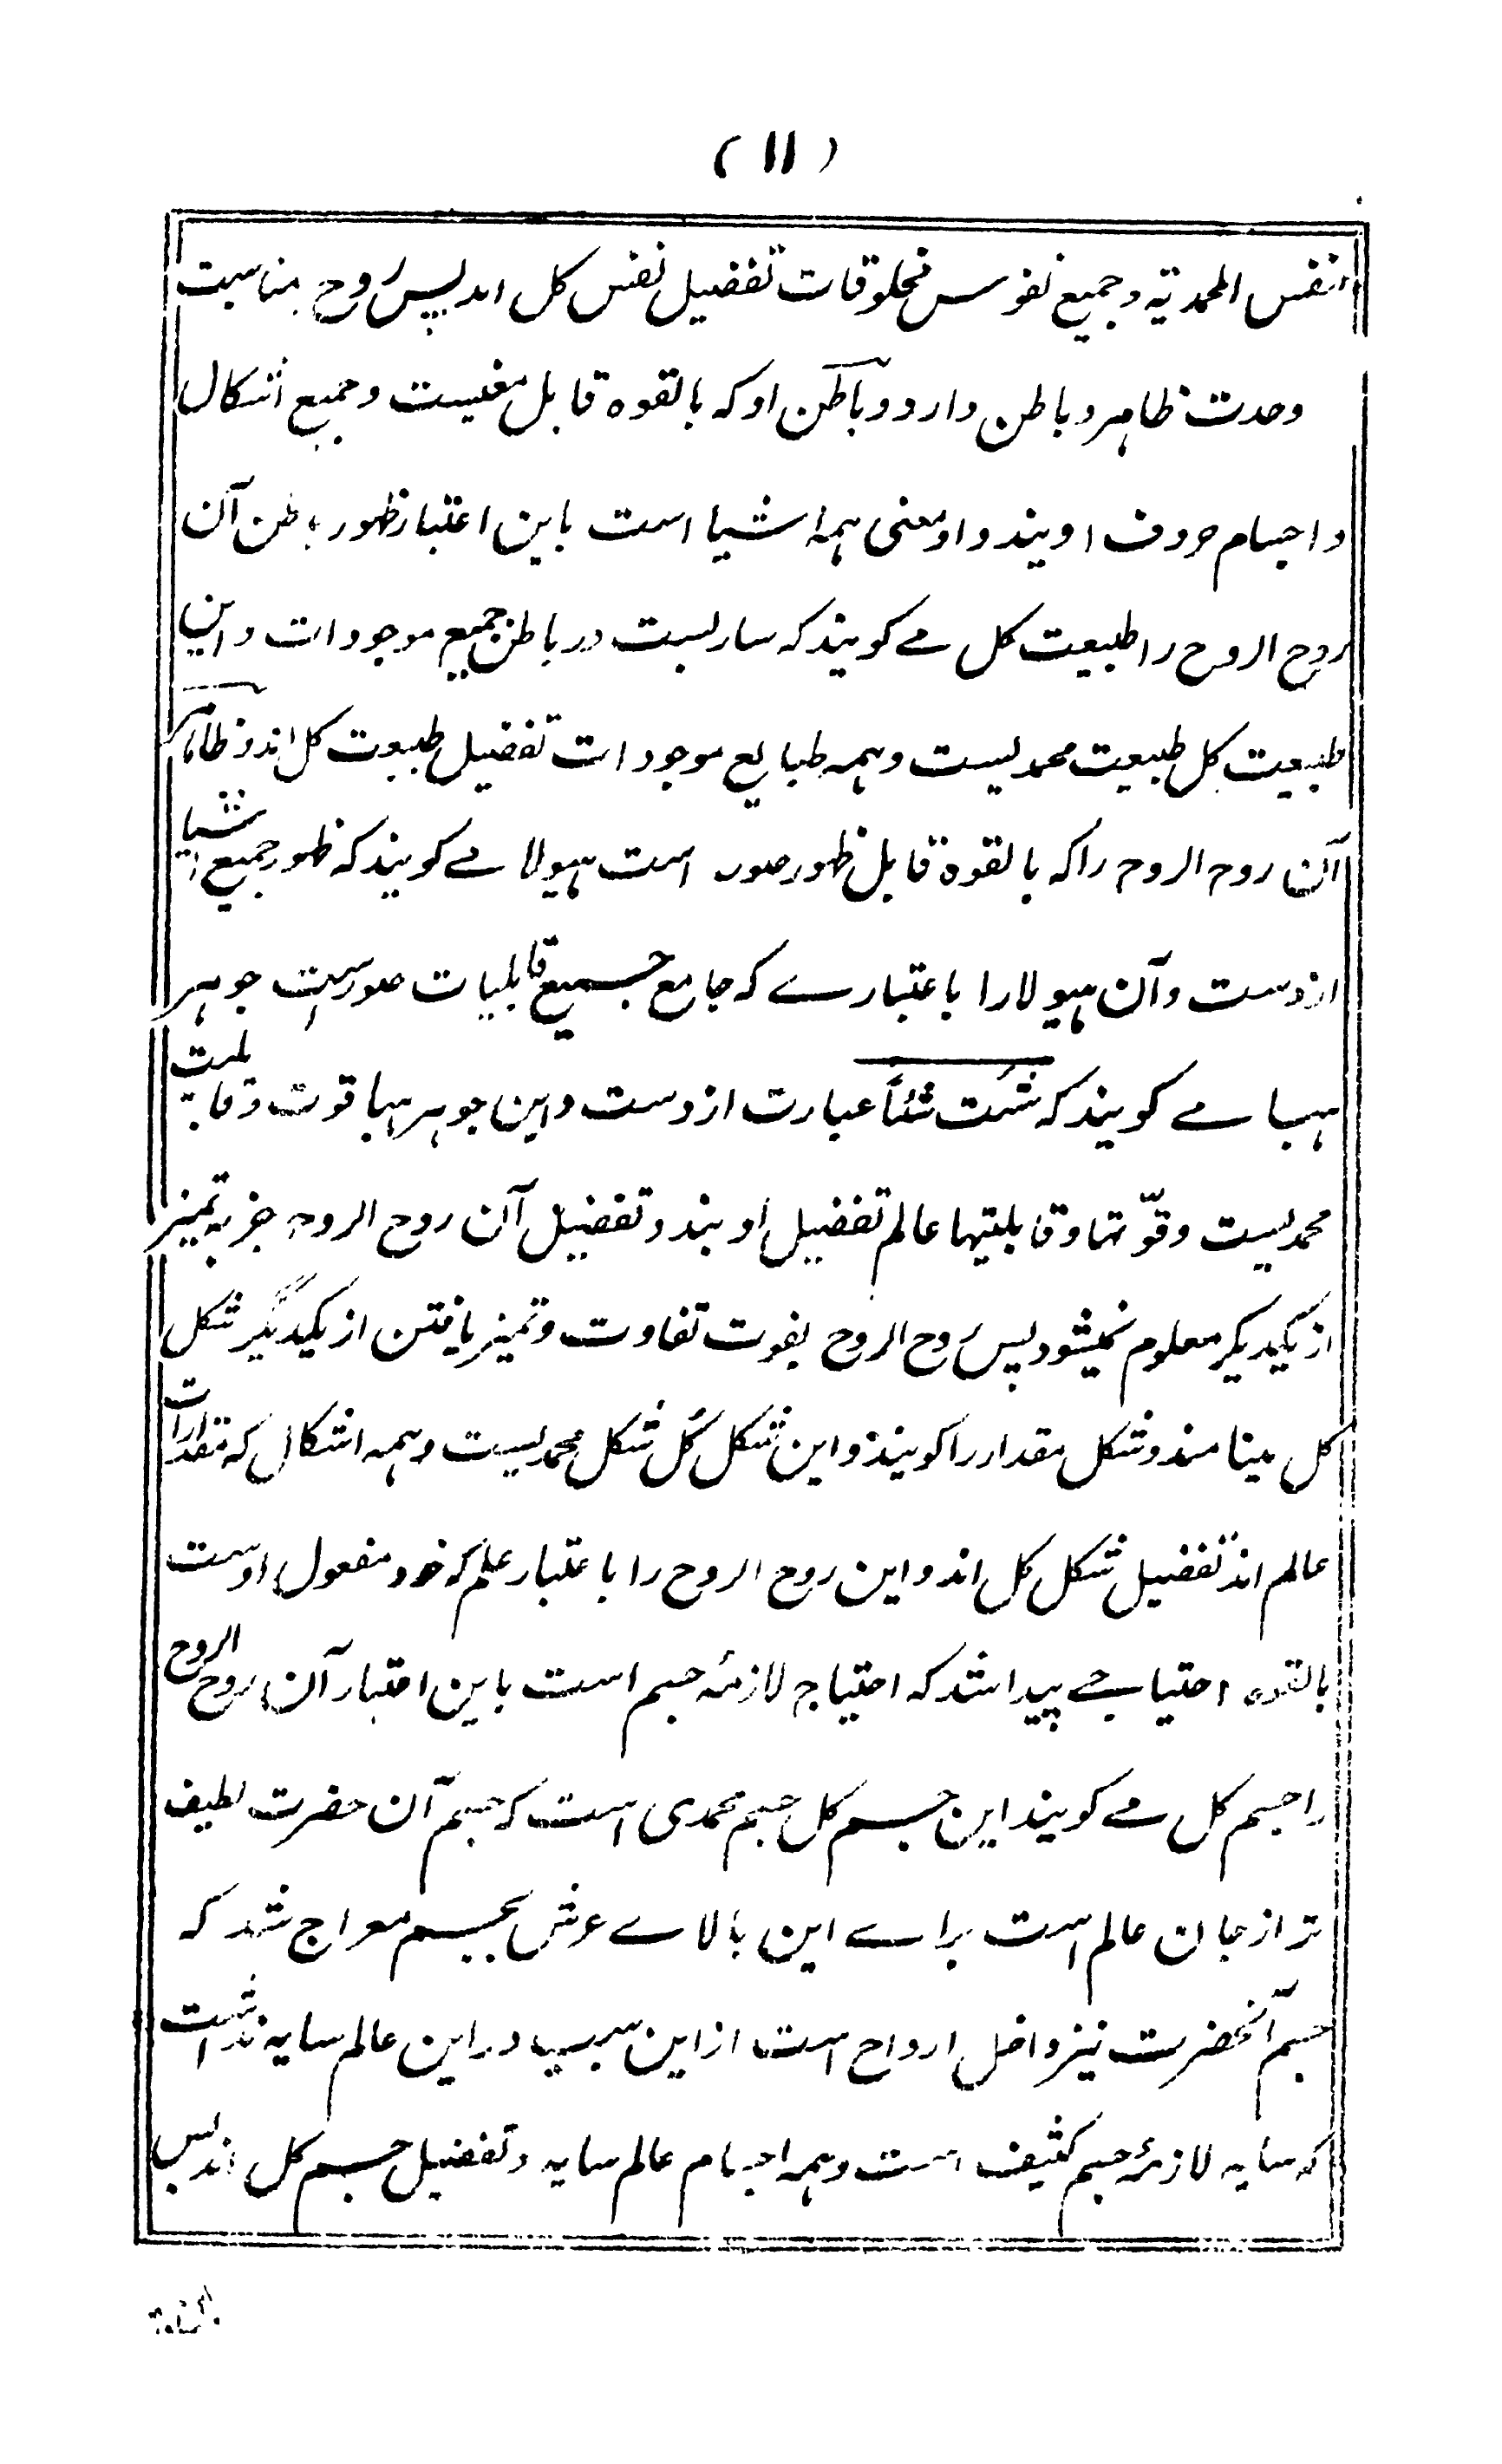 ( ۱۱ )
النفس المحمدیّة و جمیع نفوس مخلوقات تفضیل نفس کل اند پس روح بمناسبت
وحدت ظاہر و باطن دارد و باطن او کہ بالقوہ قابل معنیست و جمیع اشکال
و اجسام حروف اویند و او معنی ہمہ اشیا است باین اعتبار ظہور باطن آن
روح الروح را طبیعت کل مے کویند کہ ساریست در باطن جمیع موجودات و این
طبیعت کل طبیعت محمدیست و ہمہ طبایع موجودات تفضیل طبیعت کل اند و ظاہر
آن روح الروح را کہ بالقوة قابل ظہور صور است ہیولا مے کویند کہ ظہور جمیع اشیا
ازوست و آن ہیولا را باعتبارے کہ جامع جمیع قابلیات صورست جوہر
ہبا مے کویند کہ عبارت ازوست و این جوہر ہبا قوت و قابلیت
محمدیست و قوّتها و قابلیتها عالم تفضیل اویند و تفضیل آن روح الروح جز بہ تمییز
از یکدیکر معلوم نمیشود پس روح الروح بقوت تفاوت و تمیز یافتن از یکدیگر شکل
کل مینامند و شکل مقدار را کویند و این شکل کُل شکل محمدیست و ہمہ اشکال کہ مقدارات
عالم اند تفضیل شکل کل اند و این روح الروح را باعتبار علم کہ خود مفعول اوست
بالقوہ احتیاجے پیدا شد کہ احتیاج لازمہ جسم است باین اعتبار آن روح الروح
را جسم کل مے کویند این جسم کل جسم محمدی است کہ جسم آن حضرت لطیف
تر از جان عالم است براے این بالاے عرش بجسم معراج شد کہ
جسم آنحضرت نیز داخل ارواح است از این سبب در این عالم سایہ نداشت
کہ سایہ لازمہ جسم کثیف است و ہمہ اجسام عالم سایہ و تفضیل جسم کل اند پس